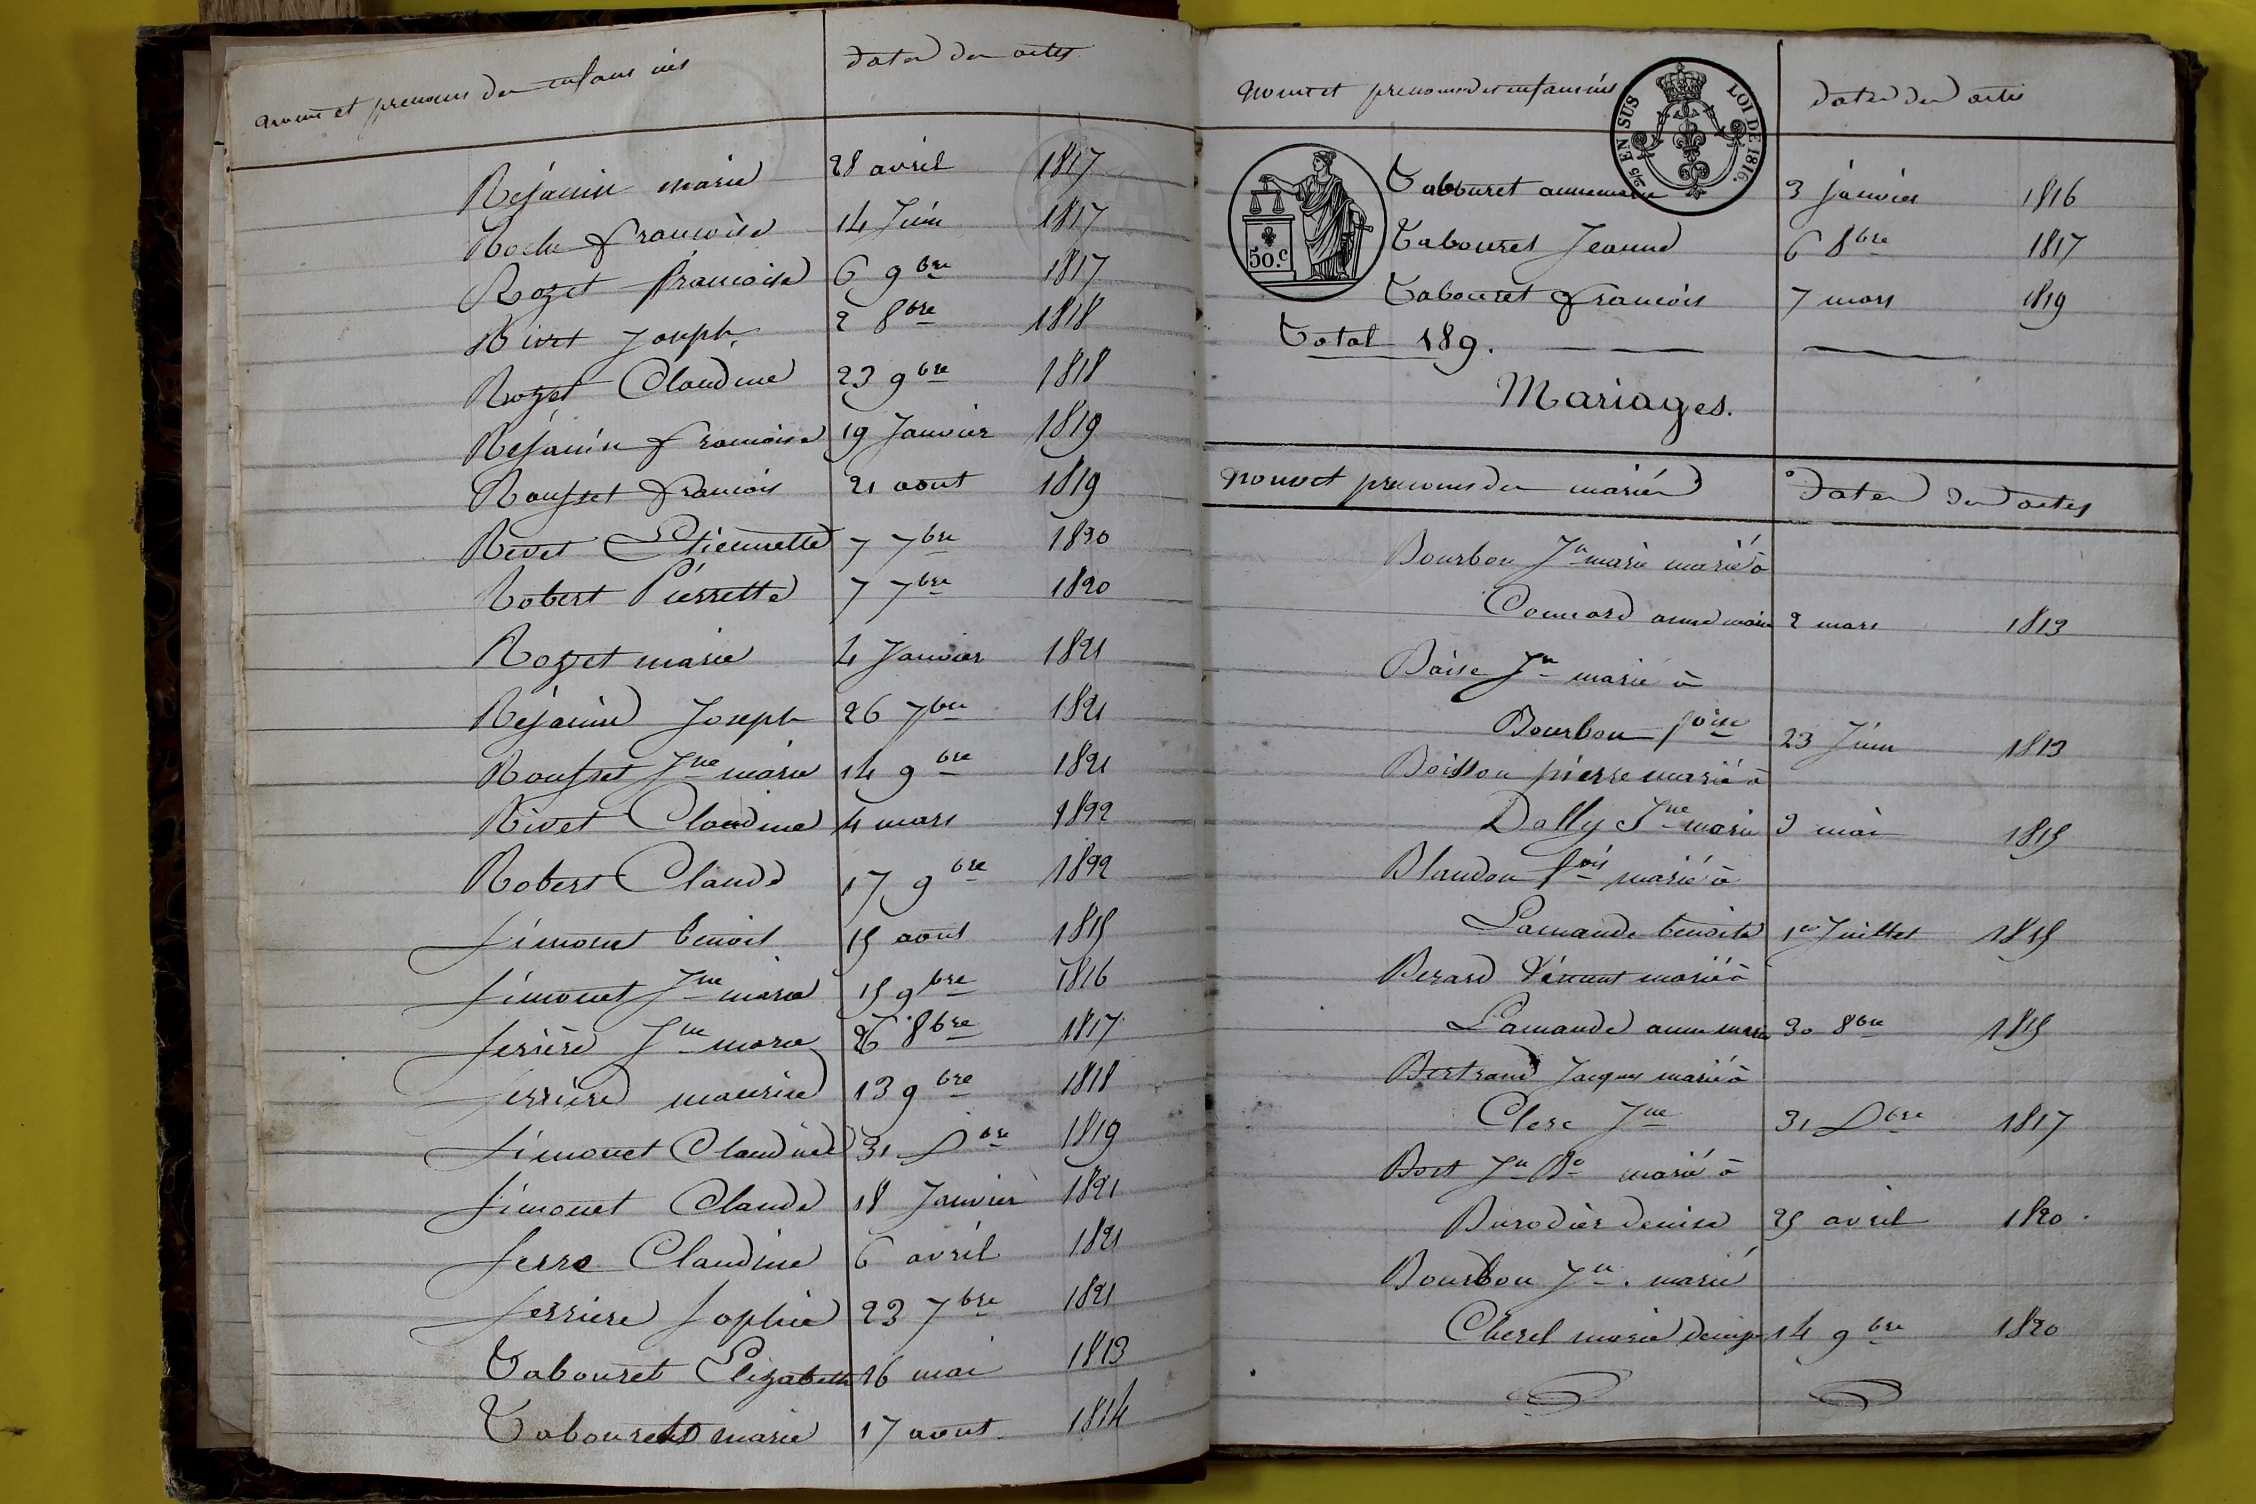 noms et prenoms des enfans nés	dates des actes
Rejanin marie	28 avril	1817
Roche francoise	14 Juin	1817
Rozet francoise	6 9bre	1817
Rivet Joseph	2 8bre	1818
Rozet Claudine	23 9bre	1818
Rejanin francoise	19 Janvier	1819
Rousset francois	21 aout	1819
Rivet Etiennette	7 7bre	1820
Robert Pierrette	7 7bre	1820
Rozet marie	4 Janvier	1821
Rejanin Joseph	26 7bre	1821
Rousset Jne marie	14 9bre	1821
Rivet Claudine	4 mars	1822
Robert Claude	17 9bre	1822
Simonet benoit	15 aout	1815
Simonet Jne marie	15 9bre	1816
Serrière Jne marie	26 8bre	1817
Serrière maurice	13 9bre	1818
Simonet Claudine	31 Xbre	1819
Simonet Claude	18 Janvier	1821
Serre Claudine	6 avril	1821
Serriere Sophie	23 7bre	1821
Tabouret Elizabeth	16 mai	1813
Tabouret marie	17 aout	1814
noms et prenoms des enfans nés	dates des actes
2/5 EN SUS LOI DE 1816.
50.c
Tabouret annemarie	3 janvier	1816
Tabouret Jeanne	6 8bre	1817
Tabouret francois	7 mars	1819
Total 189.
Mariages.
noms et prenoms des mariés	Dates des actes
Bourbon Jn marie marié à
Connard anne marie	2 mars	1813
Baise Jn marié à
Bourbon foise	23 Juin	1813
Boisson pierre marié à
Dally Jne marie	9 mai	1815
Blandon fois marié à
Lamande benoite	1er Juillet	1815
Berard Vincent marié à
Lamande anne marie	30 8bre	1815
Bertrand Jacques marié à
Clerc Jne	31 Xbre	1817
Bost Jn Bte marié à
Burodier denise	25 avril	1820.
Bourbon Jn. marié
Cherel marie denise	14 9bre	1820